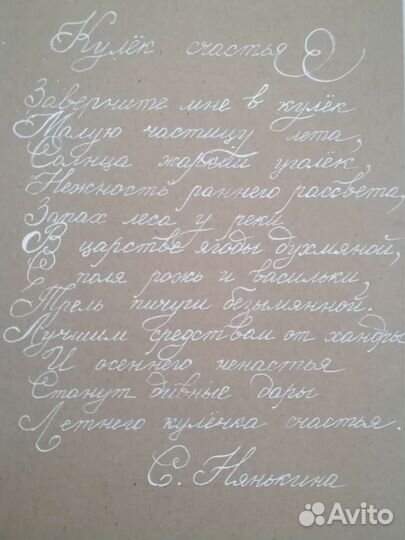 Кулёк счастья
Заверните мне в кулёк
Малую частицу лета,
Солнца жаркий уголёк,
Нежность раннего рассвета,
Запах леса у реки
В царстве ягоды духмяной,
С поля рожь и васильки,
Трель пичуги безымянной.
Лучшим средством от хандры
И осеннего ненастья
Станут дивные дары
Летнего кулёчка счастья.
С. Нянькина
Avito